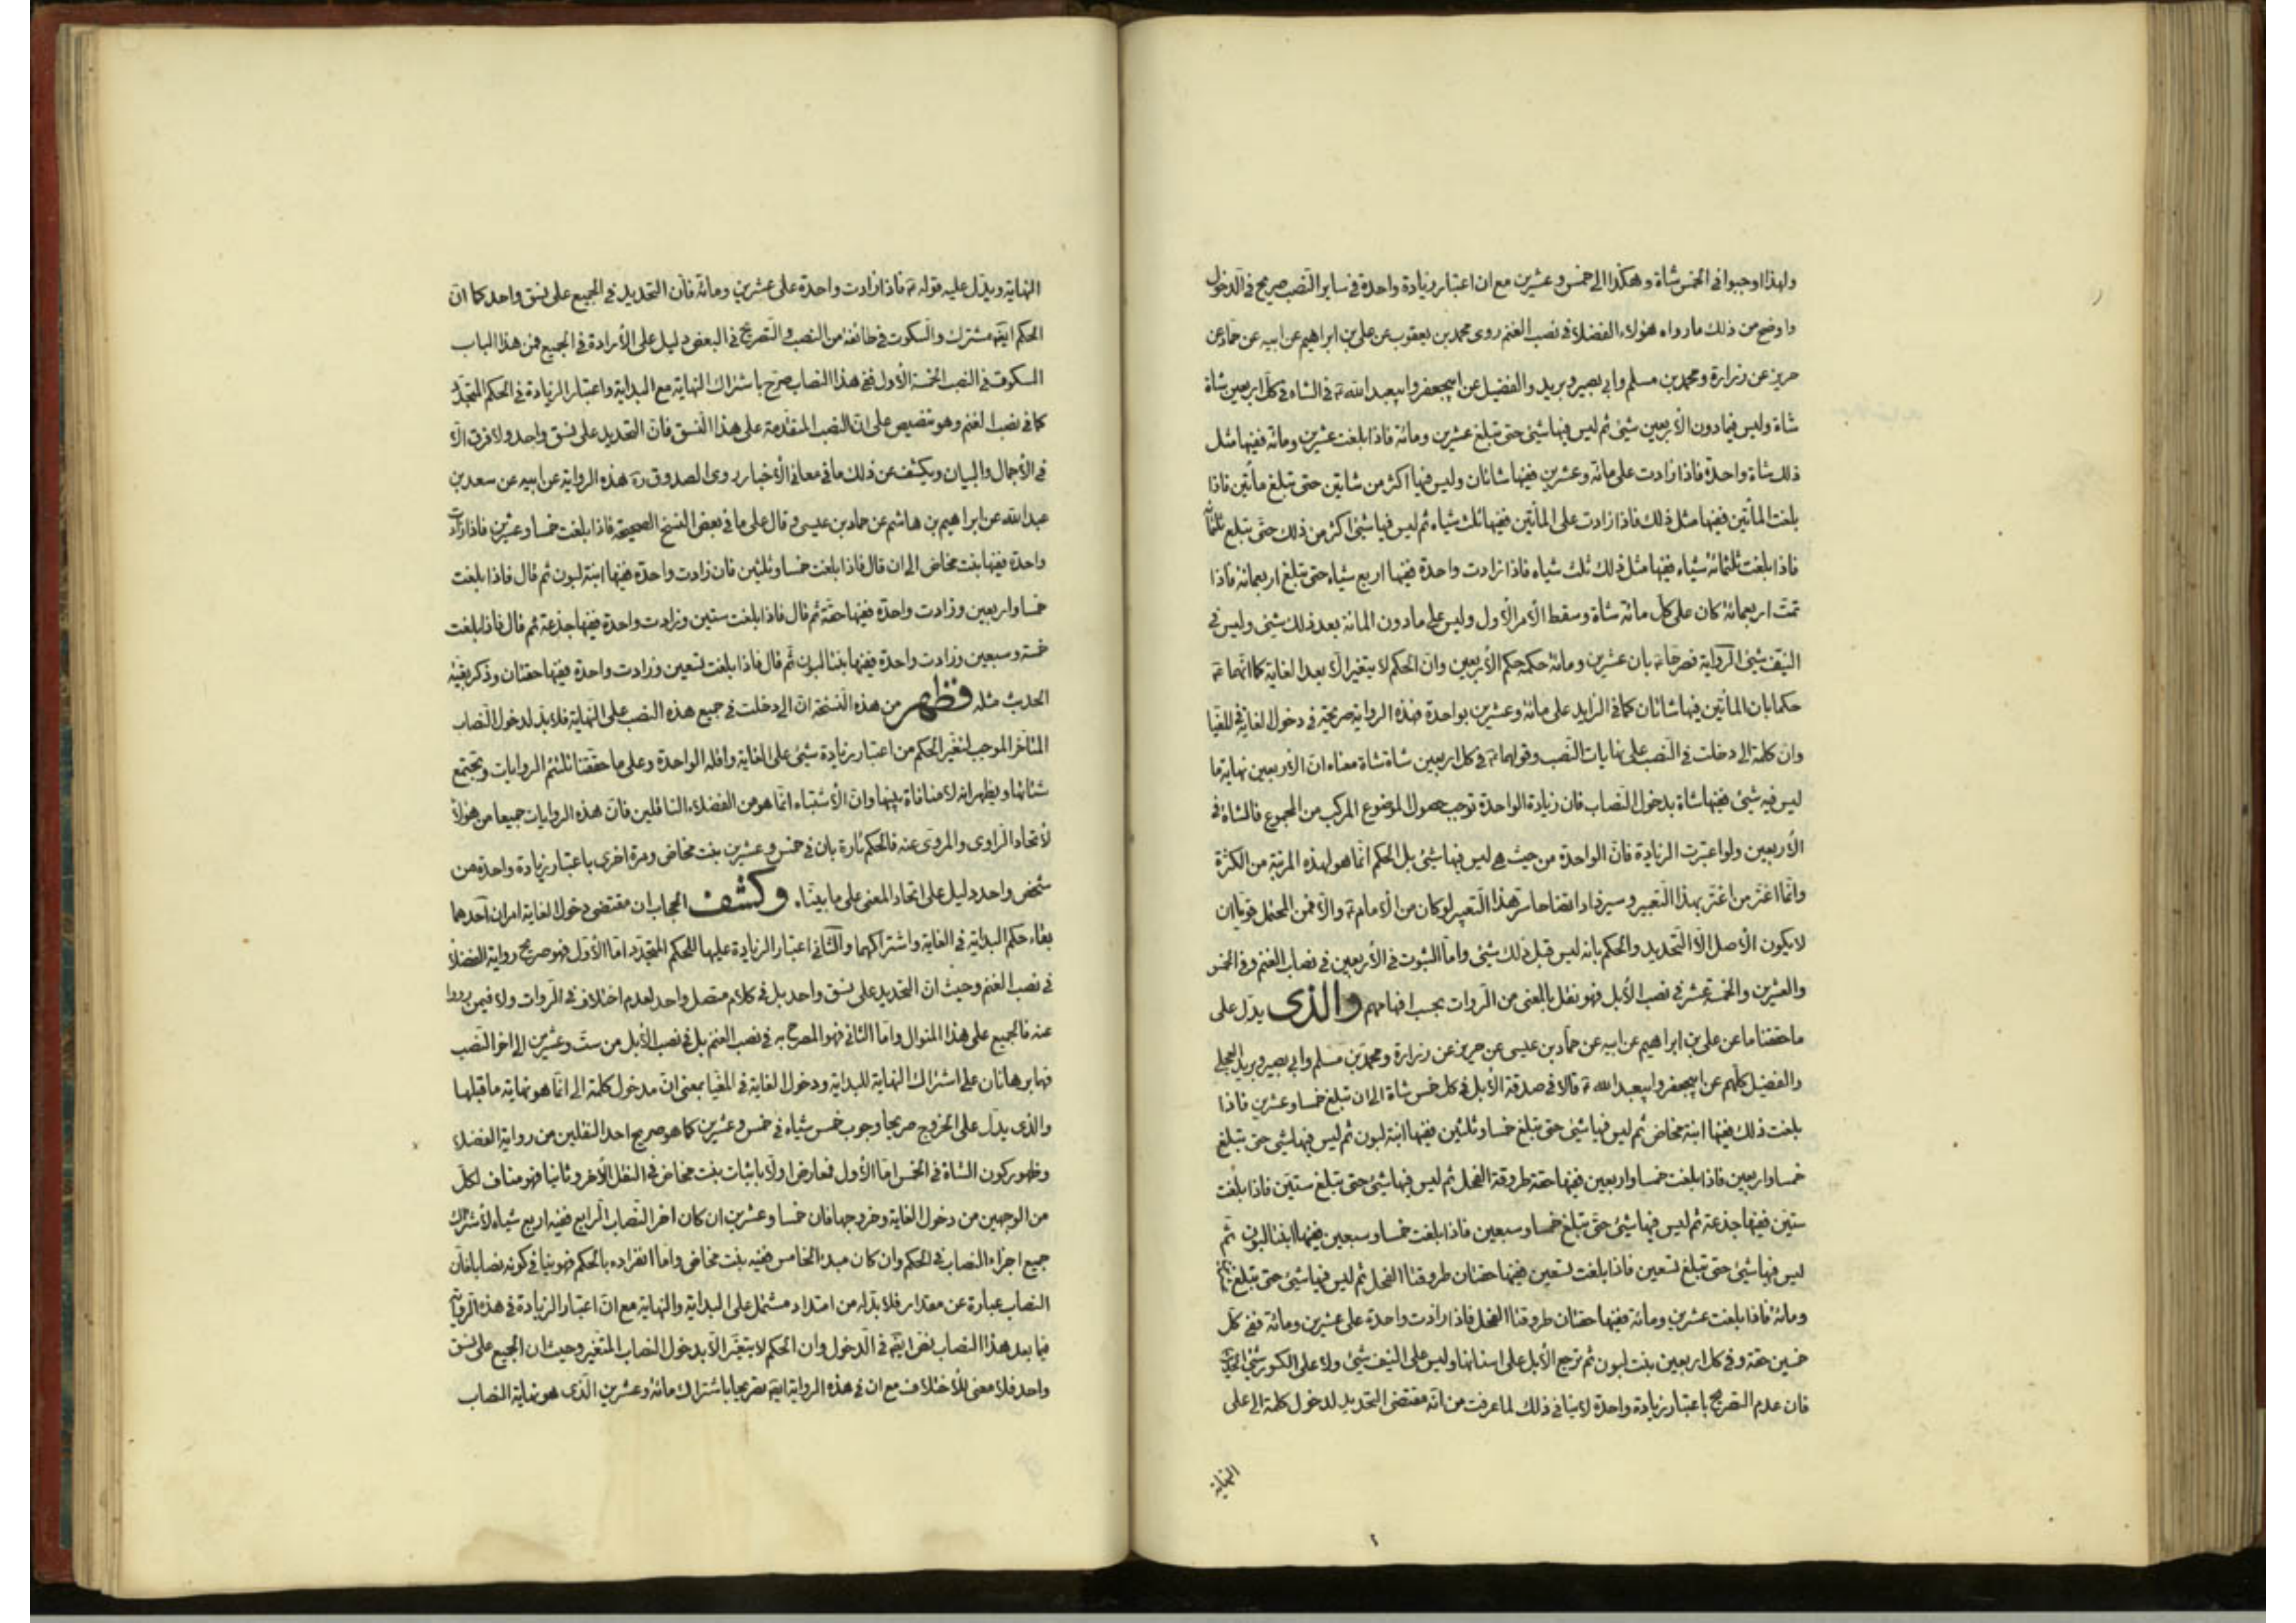 ولهذا اوجبوا في الخمس شاة وهكذا الى خمس وعشرين مع ان اعتبار زيادة واحدة في ساير النصب صريح في الدخول
واوضح من ذلك ما رواه هؤلاء الفضلاء في نصب الغنم روى محمد بن يعقوب عن علي بن ابراهيم عن ابيه عن حماد عن
حريز عن زرارة ومحمد بن مسلم وابي بصير وبريد والفضيل عن ابيجعفر وابيعبد الله ع في الشاء في كل اربعين شاة
شاة وليس فيما دون الأربعين شيئ ثم ليس فيها شيئ حتى تبلغ عشرين ومائة فاذا بلغت عشرين ومائة ففيها مثل
ذلك شاة واحدة فاذا زادت على مائة وعشرين ففيها شاتان وليس فيها اكثر من شاتين حتى تبلغ مأتين فاذا
بلغت المأتين ففيها مثل ذلك فاذا زادت على المأتين ففيها ثلث شياه ثم ليس فيها شيئ اكثر من ذلك حتى تبلغ ثلثمائة
فاذا بلغت ثلثمائة شياه ففيها مثل ذلك ثلث شياه فاذا زادت واحدة ففيها اربع شياه حتى تبلغ اربعمائة فاذا
تمت اربعمائة كان على كل مائة شاة وسقط الأمر الأول وليس على ما دون المائة بعد ذلك شيئ وليس في
النيف شيئ الرواية فصرحا ع بان عشرين ومائة حكمه حكم الأربعين وان الحكم لا يتغير الا بعد الغاية كما انهما ع
حكما بان المأتين فيها شاتان كما في الزايد على مائة وعشرين بواحدة فهذه الرواية صريحة في دخول الغاية في المغيا
وان كلمة الى دخلت في النصب على نهايات النصب وقولهما ع في كل اربعين شاة شاة معناه ان الأربعين نهاية ما
ليس فيه شيئ ففيها شاة بدخول النصاب فان زيادة الواحدة توجب حصول الموضوع المركب من المجموع فالشاة في
الأربعين ولو اعتبرت الزيادة فان الواحدة من حيث هي ليس فيها شيئ بل الحكم انما هو لهذه المرتبة من الكثرة
وانما اغتر من اغتر بهذا التعبير وسيزداد اتضاحا سر هذا التعبير لو كان من الأمام ع والا فمن المحتمل قويا ان
لا يكون الأصل الا التحديد والحكم بانه ليس قبل ذلك شيئ واما الثبوت في الأربعين في نصاب الغنم وفي الخمس
والعشرين والخمسة عشر في نصب الأبل فهو نقل بالمعنى من الروات بحسب افهامهم والذي يدل على
ما حققنا ما عن علي بن ابراهيم عن ابيه عن حماد بن عيسى عن حريز عن زرارة ومحمد بن مسلم وابي بصير وبريد العجلي
والفضيل كلهم عن ابيجعفر وابيعبد الله ع قالا في صدقة الأبل في كل خمس شاة الى ان تبلغ خمسا وعشرين فاذا
بلغت ذلك ففيها ابنة مخاض ثم ليس فيها شيئ حتى تبلغ خمسا وثلثين ففيها ابنة لبون ثم ليس فيها شيئ حتى تبلغ
خمسا واربعين فاذا بلغت خمسا واربعين ففيها حقة طروقة الفحل ثم ليس فيها شيئ حتى تبلغ ستين فاذا بلغت
ستين ففيها جذعة ثم ليس فيها شيئ حتى تبلغ خمسا وسبعين فاذا بلغت خمسا وسبعين ففيها ابنتا لبون ثم
ليس فيها شيئ حتى تبلغ تسعين فاذا بلغت تسعين ففيها حقتان طروقتا الفحل ثم ليس فيها شيئ حتى تبلغ عشرين
ومائة فاذا بلغت عشرين ومائة ففيها حقتان طروقتا الفحل فاذا زادت واحدة على عشرين ومائة ففي كل
خمسين حقة وفي كل اربعين بنت لبون ثم ترجع الأبل على اسنانها وليس على النيف شيئ ولا على الكسور شيئ الحديث
فان عدم التصريح باعتبار زيادة واحدة لا ينافي ذلك لما عرفت من انه مقتضى التحديد لدخول كلمة الى على
النهاية
النهاية ويدل عليه قوله ع فاذا زادت واحدة على عشرين ومائة فان التحديد في الجميع على نسق واحد كما ان
الحكم ايضا مشترك والسكوت في طائفة من النصب والتصريح في البعض دليل على الأرادة في الجميع فمن هذا الباب
السكوت في النصب الخمسة الأول ففي هذا النصاب صرح باشتراك النهاية مع البداية واعتبار الزيادة في الحكم المتجدد
كما في نصب الغنم وهو تنصيص على ان النصب المتقدمة على هذا النسق فان التحديد على نسق واحد ولا فرق الا
في الأجمال والبيان ويكشف عن ذلك ما في معاني الأخبار روى الصدوق ره هذه الرواية عن ابيه عن سعد بن
عبد الله عن ابراهيم بن هاشم عن حماد بن عيسى وقال على ما في بعض النسخ الصحيحة فاذا بلغت خمسا وعشرين فاذا زادت
واحدة ففيها بنت مخاض الى ان قال فاذا بلغت خمسا وثلثين فان زادت واحدة ففيها ابنة لبون ثم قال فاذا بلغت
خمسا واربعين وزادت واحدة ففيها حقة ثم قال فاذا بلغت ستين وزادت واحدة ففيها جذعة ثم قال فاذا بلغت
خمسة وسبعين وزادت واحدة ففيها بنتا لبون ثم قال فاذا بلغت تسعين وزادت واحدة ففيها حقتان وذكر بقية
الحديث مثله فظهر من هذه النسخة ان الى دخلت في جميع هذه النصب على النهاية فلا بد لدخول النصاب
المتاخر الموجب لتغير الحكم من اعتبار زيادة شيئ على الغاية واقله الواحدة وعلى ما حققنا تلتئم الروايات وتجتمع
شتاتها ويظهر انه لا منافاة بينها وان الأشتباه انما هو من الفضلاء الناقلين فان هذه الروايات جميعا من هؤلاء
لأتحاد الراوي والمروى عنه فالحكم تارة بان في خمس وعشرين بنت مخاض ومرة اخرى باعتبار زيادة واحدة من
شخص واحد دليل على اتحاد المعنى على ما بينا. وكشف الحجاب ان مقتضى دخول الغاية امران احدهما
بقاء حكم البداية في الغاية واشتراكهما والثاني اعتبار الزيادة عليها للحكم المتجدد اما الأول فهو صريح رواية الفضلاء
في نصب الغنم وحيث ان التحديد على نسق واحد بل في كلام متصل واحد لعدم اختلاف في الروات ولا فيمن رووا
عنه فالجميع على هذا المنوال واما الثاني فهو المصرح به في نصب الغنم بل في نصب الأبل من ست وعشرين الى اخر النصب
فهما برهانان على اشتراك النهاية للبداية ودخول الغاية في المغيا بمعنى ان مدخول كلمة الى انما هو نهاية ما قبلها
والذي يدل على الخروج صريحا وجوب خمس شياه في خمس وعشرين كما هو صريح احد النقلين من رواية الفضلاء
وظهور كون الشاة في الخمس اما الأول فمعارض اولا باثبات بنت مخاض في النقل الأخر وثانيا فهو مناف لكل
من الوجهين من دخول الغاية وخروجها فان خمسا وعشرين ان كان اخر النصاب الرابع ففيه اربع شياه لأشتراك
جميع اجزاء النصاب في الحكم وان كان مبدء الخامس ففيه بنت مخاض واما انفراده بالحكم فهو ينافي كونه نصابا فان
النصاب عبارة عن مقدار فلا بد له من امتداد مشتمل على البداية والنهاية مع ان اعتبار الزيادة في هذه الرواية
فيما بعد هذا النصاب نص ايضا في الدخول وان الحكم لا يتغير الا بدخول النصاب المتغير وحيث ان الجميع على نسق
واحد فلا معنى للأختلاف مع ان في هذه الرواية ايضا تصريحا باشتراك مائة وعشرين الذي هو نهاية النصاب